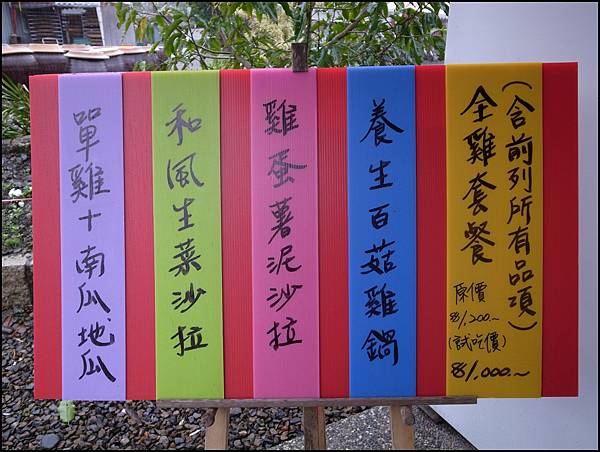 (含前列所有品項)
全雞套餐
原價
$1,200.~
(試吃價)
$1,000.~
養生百菇雞鍋
雞蛋薯泥沙拉
和風生菜沙拉
單雞+南瓜.地瓜